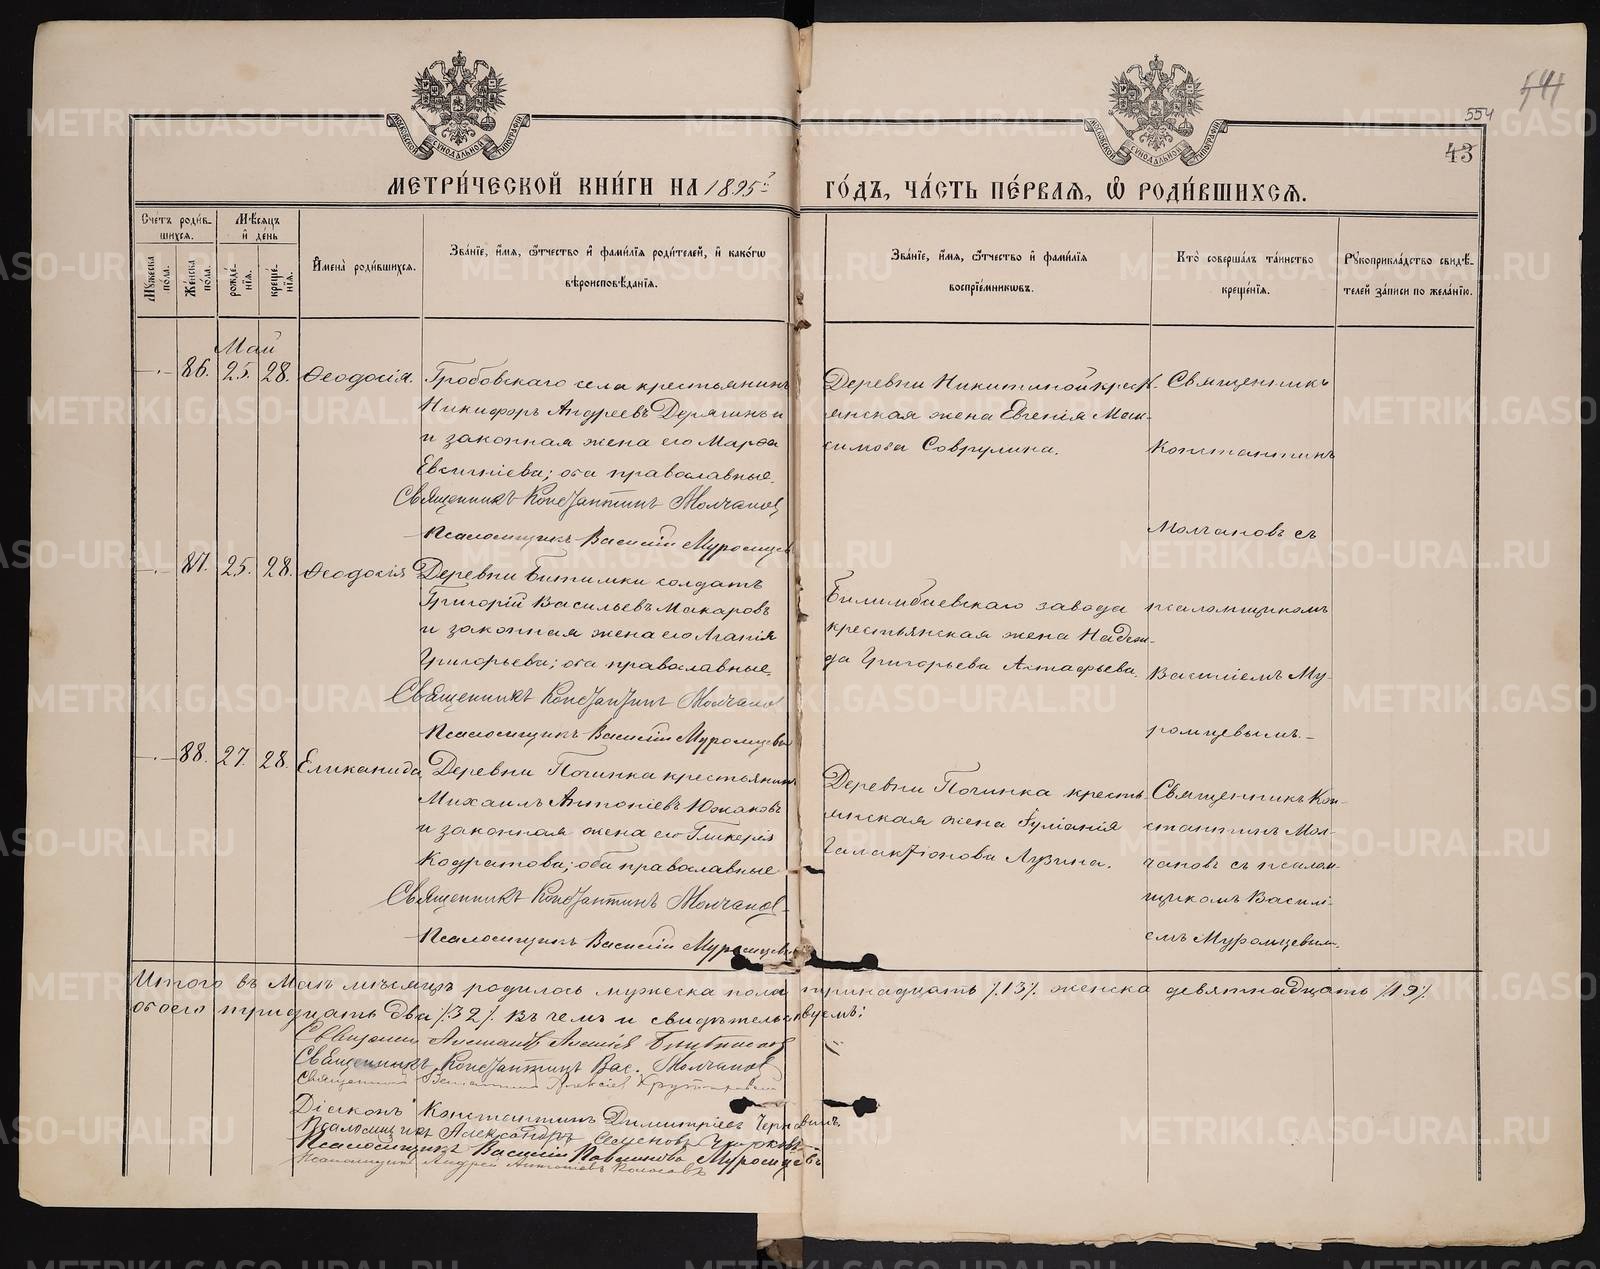 544
554
43
МОСКОВСКОЙ СѴНОДАЛЬНОЙ ТИПОГРАФІИ
МОСКОВСКОЙ СѴНОДАЛЬНОЙ ТИПОГРАФІИ
МЕТРИ́ЧЕСКОЙ КНИ́ГИ НА 1895й ГО́ДЪ, ЧА́СТЬ ПЕ́РВАЯ, Ѡ҆ РОДИ́ВШИХСЯ.
Сче́тъ роди́вшихся.
Мꙋжеска пола.
Же́нска пола.
Мѣ́сяцъ и҆ де́нь
рожде́нїя.
креще́нїя.
И҆мена̀ роди́вшихся.
Зва́нїе, и҆́мя, ѻ҆́тчество и҆ фамѝлїя роди́телей, и҆ како́гѡ вѣроисповѣ́данїя.
Зва́нїе, и҆́мя, ѻ҆́тчество и҆ фами́лїя воспрїе́мникѡвъ.
Кто̀ соверша́лъ та́инство креще́нїя.
Рꙋкоприкла́дство свидѣ́телей за́писи по жела́нїю.
Май
86. 25. 28. Ѳеодосія.
Гробовскаго села крестьянинъ
Никифоръ Андреевъ Дерягинъ и
и законная жена его Марѳа
Евсигніева; оба православные.
Священникъ Константинъ Молчановъ
Псаломщикъ Василій Муромцевъ
Деревни Никитиной крестьянская жена Евгенія Максимова Соврулина.
Священникъ
Константинъ
Молчановъ съ
псаломщикомъ
Василіемъ Муромцевымъ.
87. 25. 28. Ѳеодосія
Деревни Битимки солдатъ
Григорій Васильевъ Макаровъ
и законная жена его Агапія
Григорьева; оба православные.
Священникъ Константинъ Молчановъ
Псаломщикъ Василій Муромцевъ
Билимбаевскаго завода
крестьянская жена Надежда Григорьева Астафьева.
88. 27. 28. Еликанида
Деревни Починка крестьянинъ
Михаилъ Антоніевъ Южаковъ
и законная жена его Гликерія
Кодратова; оба православные
Священникъ Константинъ Молчановъ
Псаломщикъ Василій Муромцевъ
Деревни Починка крестьянская жена Іуліанія
Галактіонова Лузина.
Священникъ Константинъ Молчановъ съ псаломщикомъ Василіемъ Муромцевым.
Итого въ Маѣ мѣсяцѣ родилось мужеска пола тринадцать /13/. женска девятнадцать /19/.
обоего тридцать два /32/. Въ чемъ и свидѣтельствуемъ:
Священникъ Константинъ Вас. Молчановъ
Священникъ Алексіев
Діаконъ Константинъ Димитріевъ
Псаломщикъ Александръ Семеновъ
Псаломщикъ Василій Павлиновъ Муромцевъ
Псаломщикъ Андрей Антоніевъ
METRIKI.GASO-URAL.RU